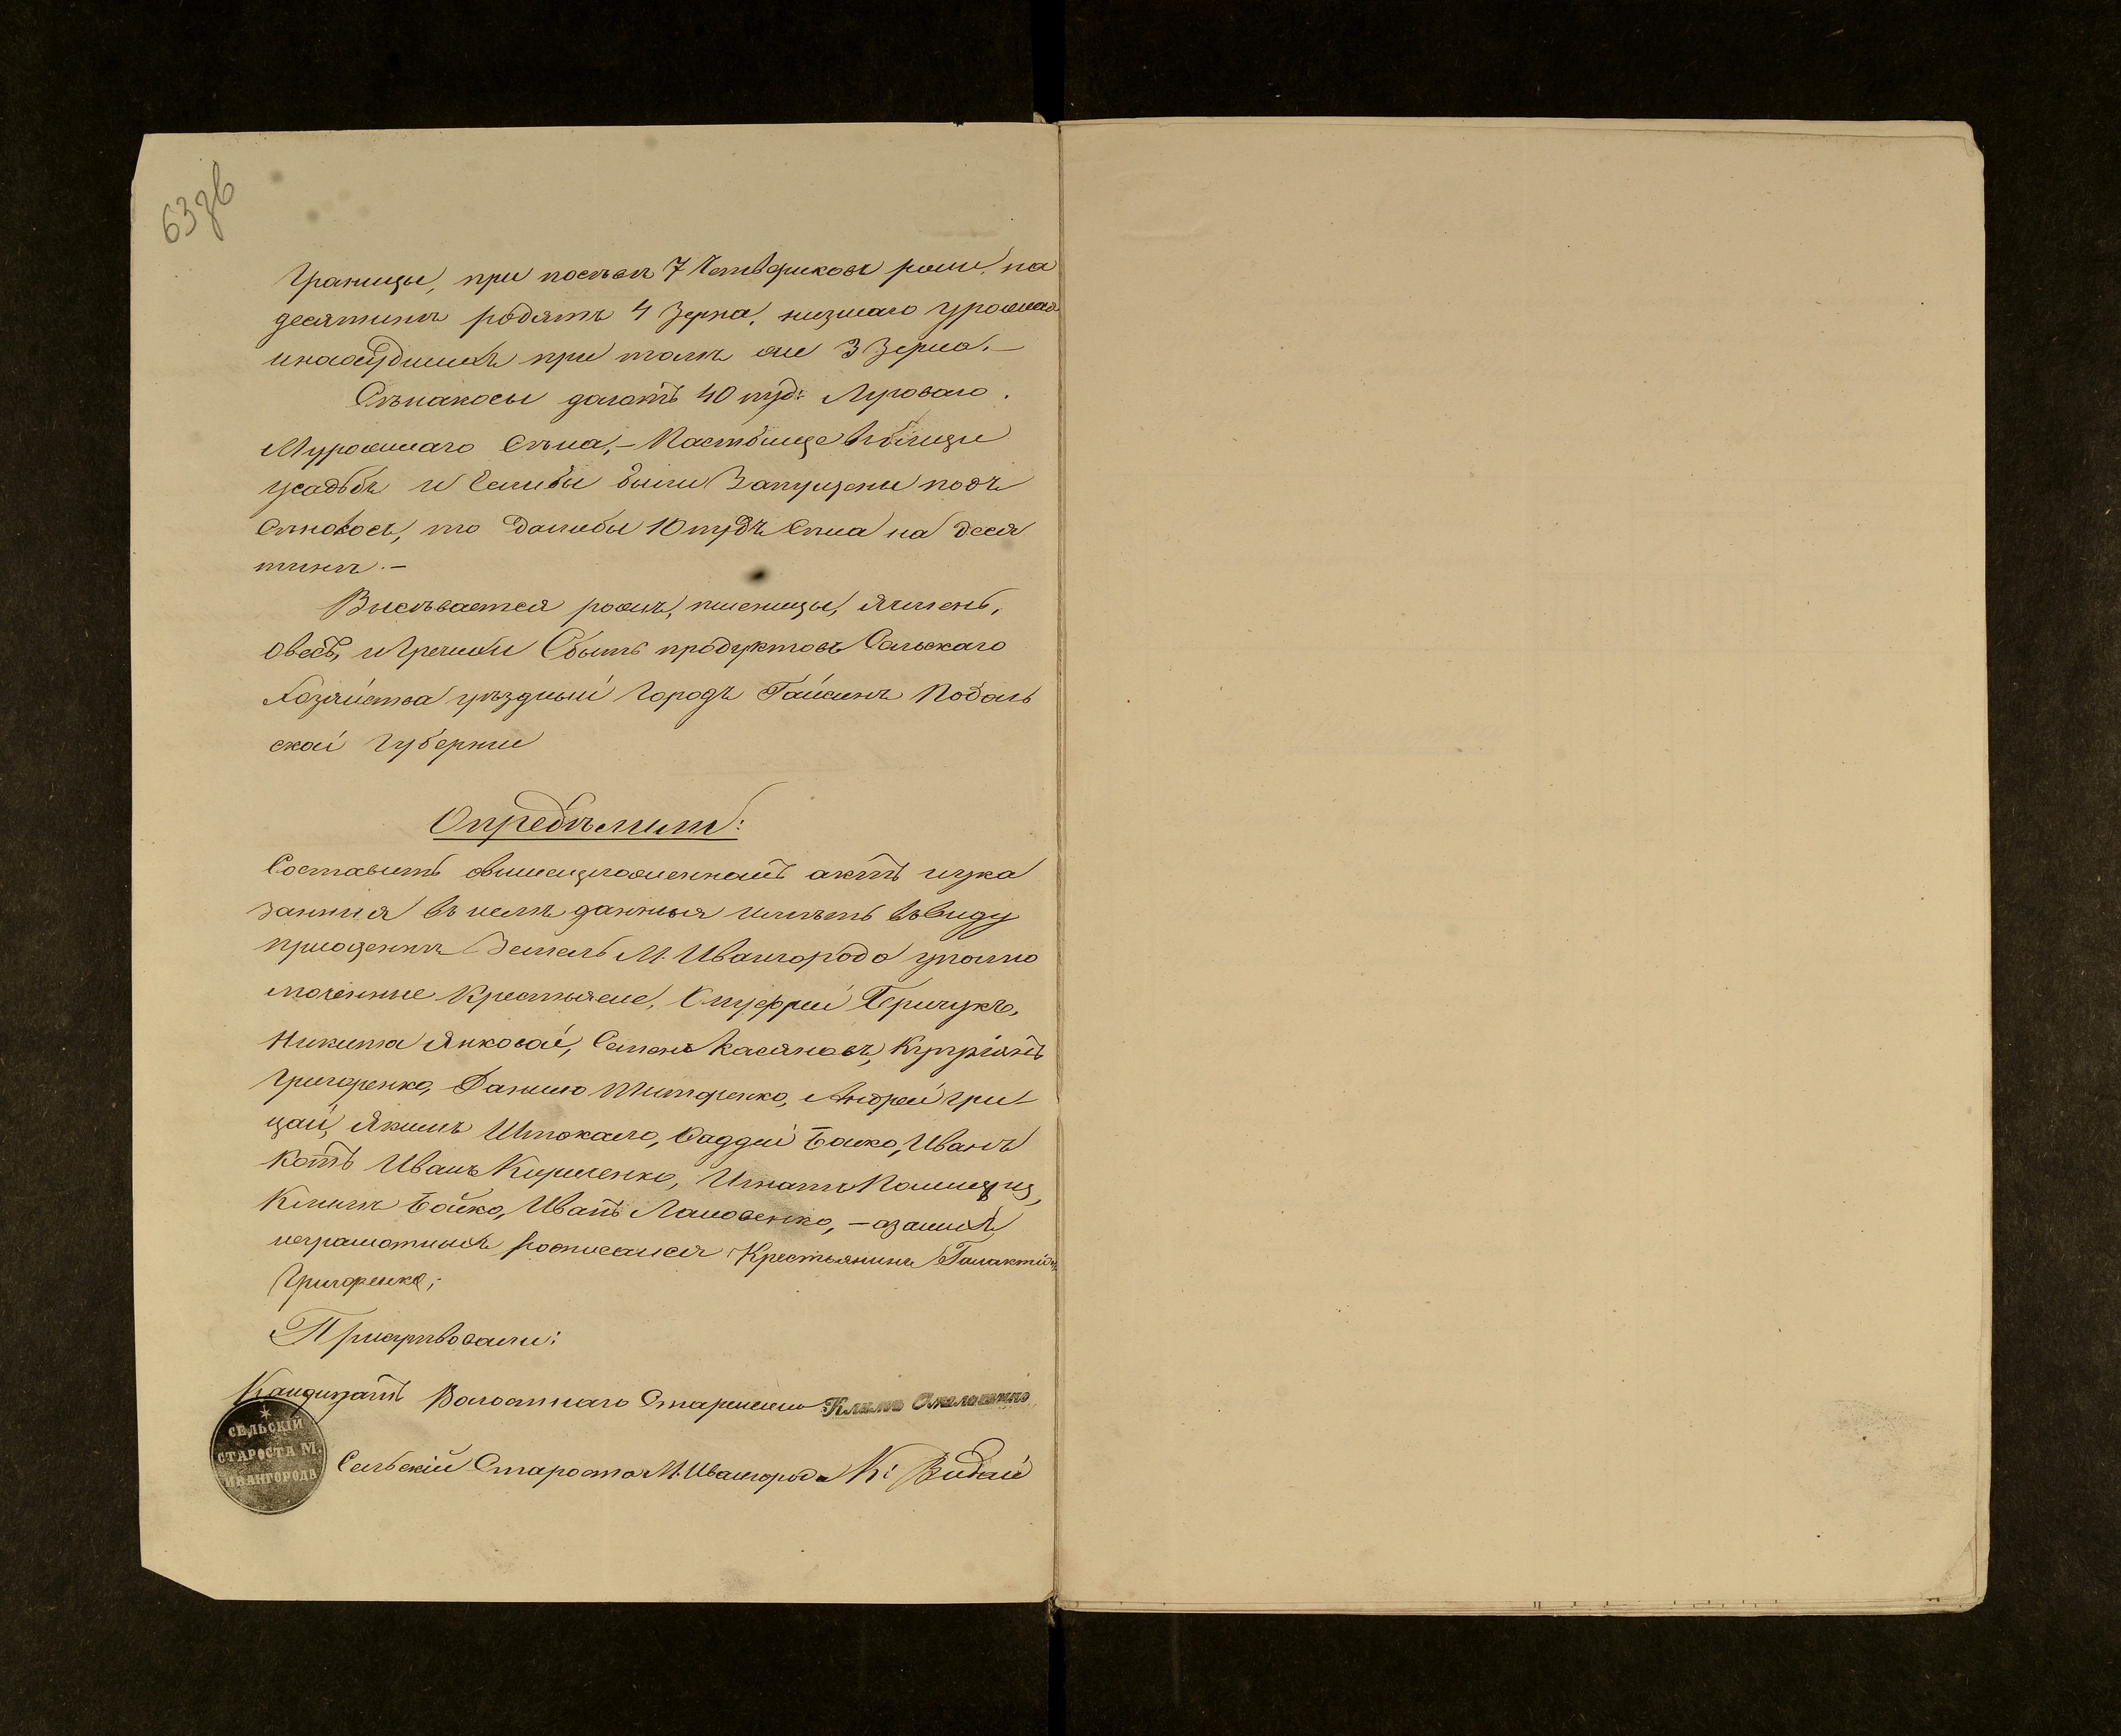 63 зв
границы, при посѣвѣ 7 Четвериковъ ржи, на
десятинѣ родятъ 4 Зерна, низшаго урожая
при томъ же 3 Зерна.—
Сѣнакосы даютъ 40 пуд: Луговаго.
Сѣна,— Пастбище
усадьбъ и Еслибы были Запущены подъ
Сѣнокосъ, то Далибы 10 пудъ Сѣна на Деся
тинѣ.—
Висѣвается рожъ, пшеницы, Ячмень,
Овесъ, и Гречихи Сбытъ продуктовъ Сельскаго
Хозяйства уѣздный Городъ Гайсинъ Подоль
ской Губерніи
Опредѣлили:
Составить актъ иука
занния въ немъ данныя имѣть ввиду
Земель М. Ивангорода уполно
моченние Крестьяне, Онуфрей Гричукъ,
Никита Янковой, Семенъ Касяновъ, Купріянъ
Григоренко, Данило Титоренко, Андрей Гри-
цай, Якимъ Штокало, Фаддей Бойко, Иванъ
Котъ Иванъ Кириленко, Игнатъ
Климъ Бойко, Иванъ — азанихъ
неграмотныхъ росписался Крестьянинъ Галактіонъ
Григоренко;
Кандидатъ Волостнаго Старшины Климъ
СЕЛЬСКІЙ СТАРОСТА М. ИВАНГОРОДА
Сельскій Староста М. Ивангорода К: